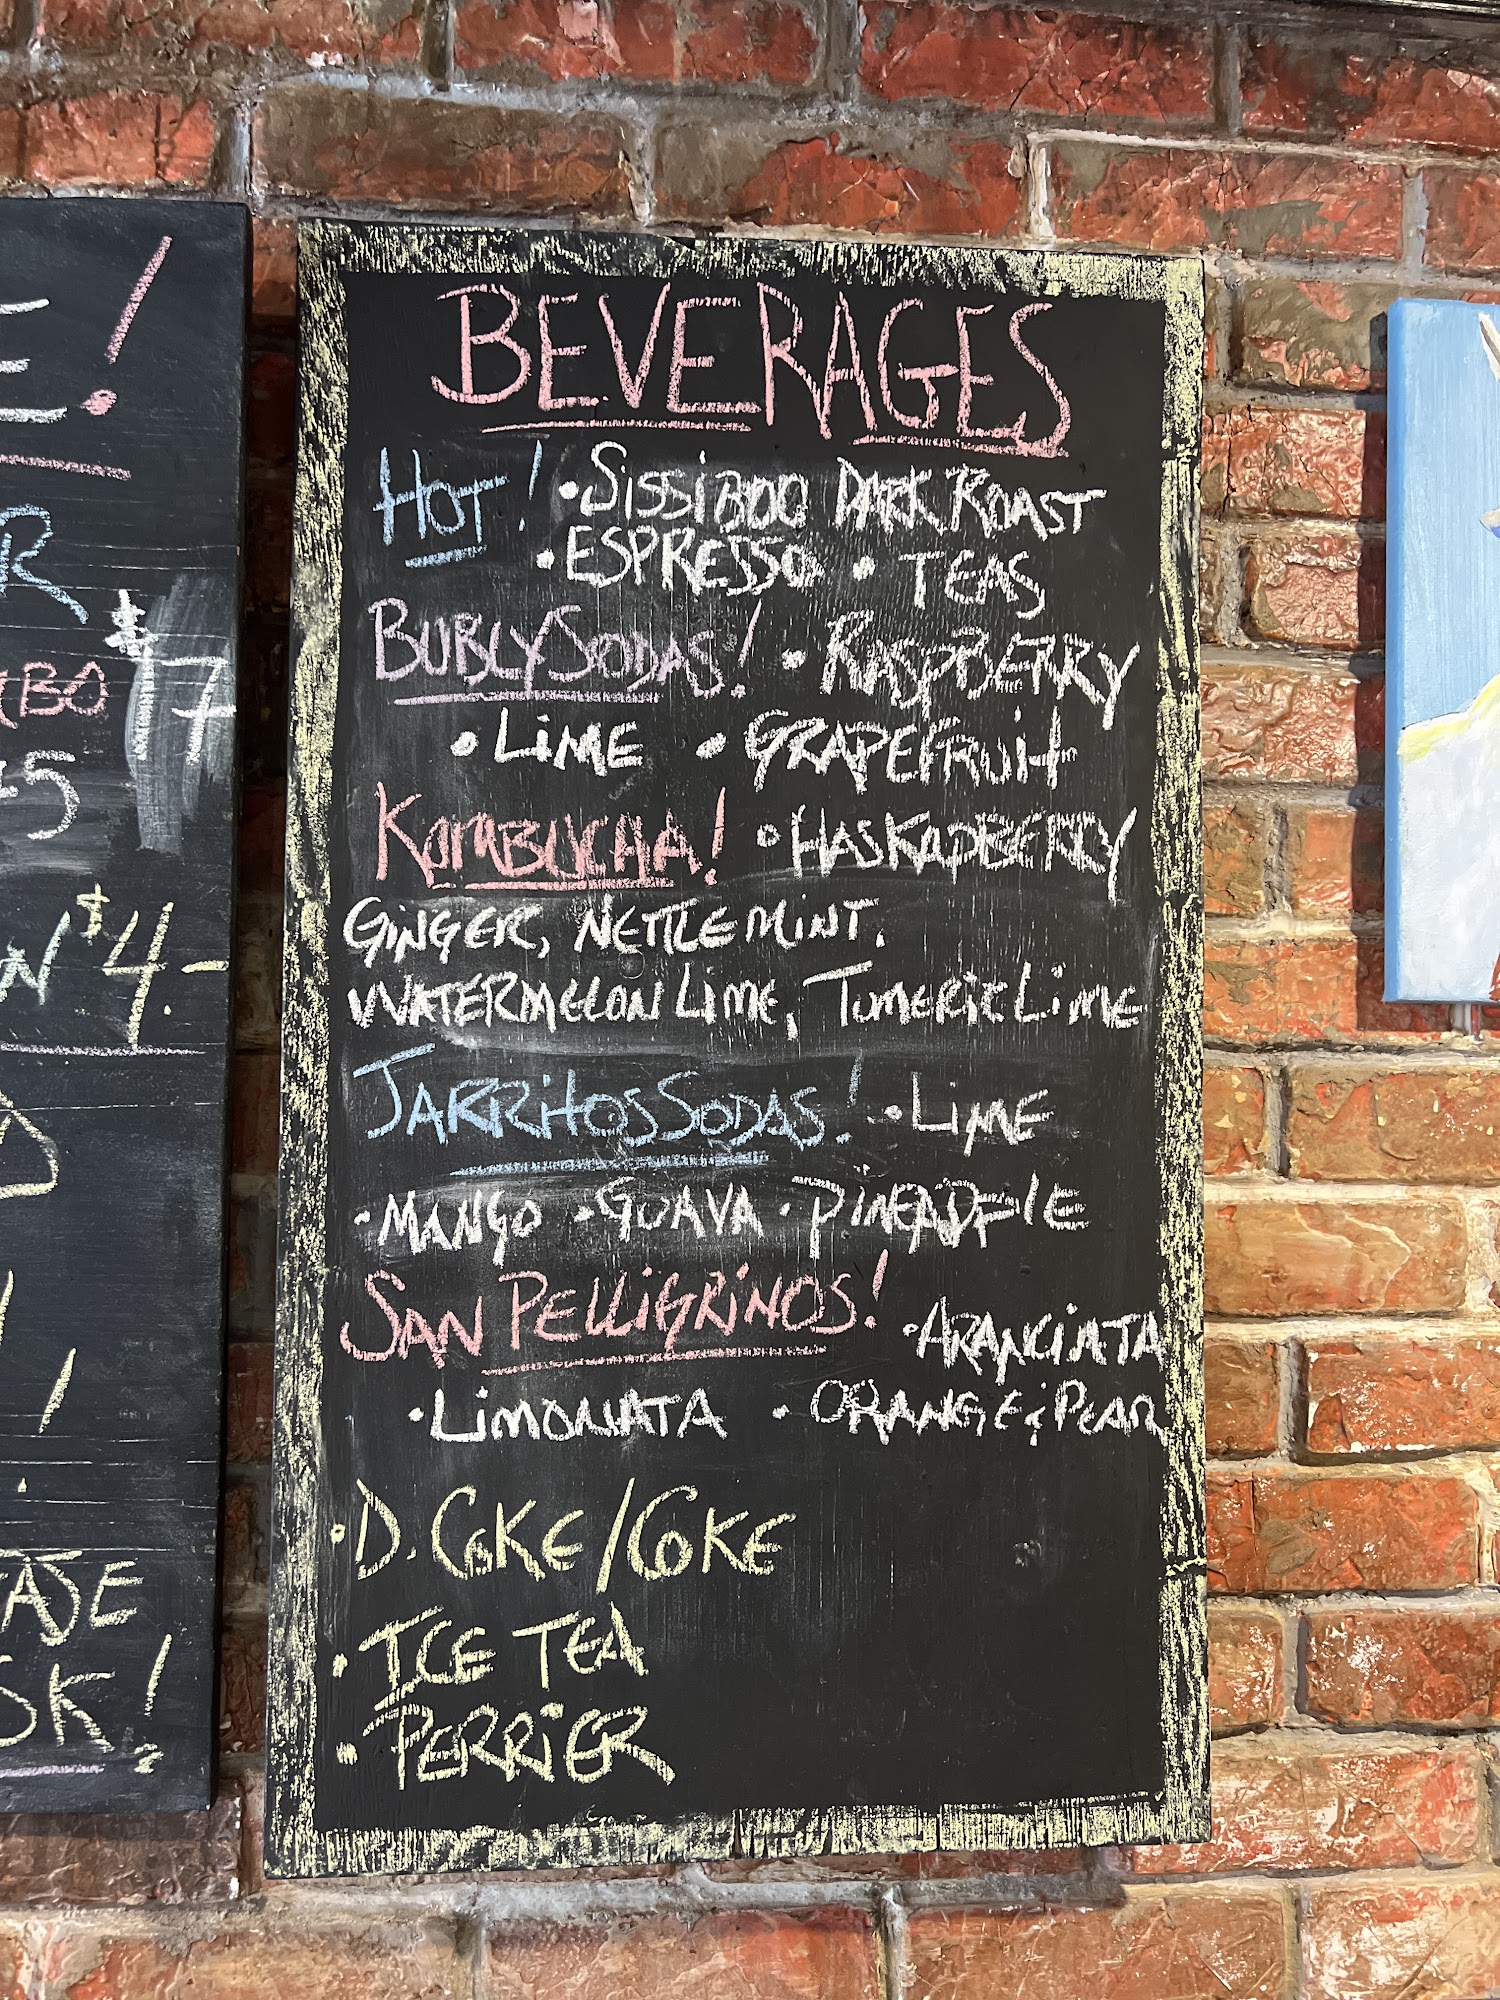 BEVERAGES
HOT! • SISSIBOO DARK ROAST
• ESPRESSO • TEAS
BUBLY SODAS! • RASPBERRY
• LIME • GRAPEFRUIT
KOMBUCHA! • HASKAPBERRY
GINGER, NETTLE MINT,
WATERMELON LIME, TUMERIC LIME
JARRITOS SODAS! • LIME
• MANGO • GUAVA • PINEAPPLE
SAN PELLIGRINOS! • ARANCIATA
• LIMONATA • ORANGE & PEAR
• D. COKE / COKE
• ICE TEA
• PERRIER
E!
R
$7
BO
5
N $4.-
D
!
EASE
SK!